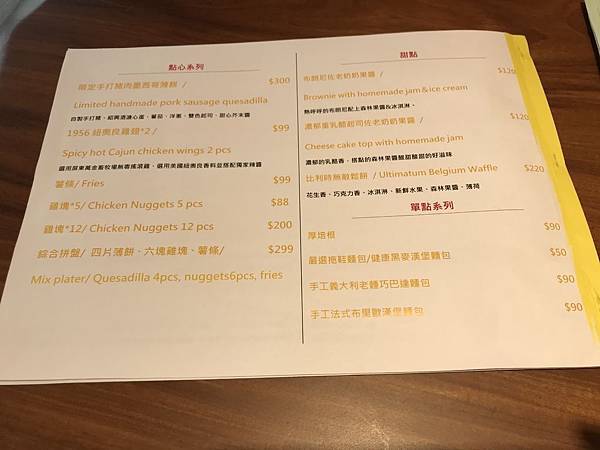 點心系列
限定手打豬肉墨西哥薄餅 / $300
Limited handmade pork sausage quesadilla
自製手打豬、紹興酒溏心蛋、蕃茄、洋蔥、雙色起司、甜心芥末醬
1956 紐奧良雞翅*2 / $99
Spicy hot Cajun chicken wings 2 pcs
選用屏東萬金畜牧場無毒搖滾雞、選用美國紐奧良香料並搭配獨家辣醬
薯條/ Fries $99
雞塊*5/ Chicken Nuggets 5 pcs $88
雞塊*12/ Chicken Nuggets 12 pcs $200
綜合拼盤/ 四片薄餅、六塊雞塊、薯條/ $299
Mix plater/ Quesadilla 4pcs, nuggets6pcs, fries
甜點
布朗尼佐老奶奶果醬 / $120
Brownie with homemade jam＆ice cream
熱呼呼的布朗尼配上森林果醬&冰淇淋。
濃郁重乳酪起司佐老奶奶果醬 / $120
Cheese cake top with homemade jam
濃郁的乳酪香，搭點的森林果醬酸甜酸甜的好滋味
比利時無敵鬆餅 / Ultimatum Belgium Waffle $220
花生香、巧克力香、冰淇淋、新鮮水果、森林果醬、薄荷
單點系列
厚培根 $90
嚴選拖鞋麵包/健康黑麥漢堡麵包 $50
手工義大利老麵巧巴達麵包 $90
手工法式布里歐漢堡麵包 $90